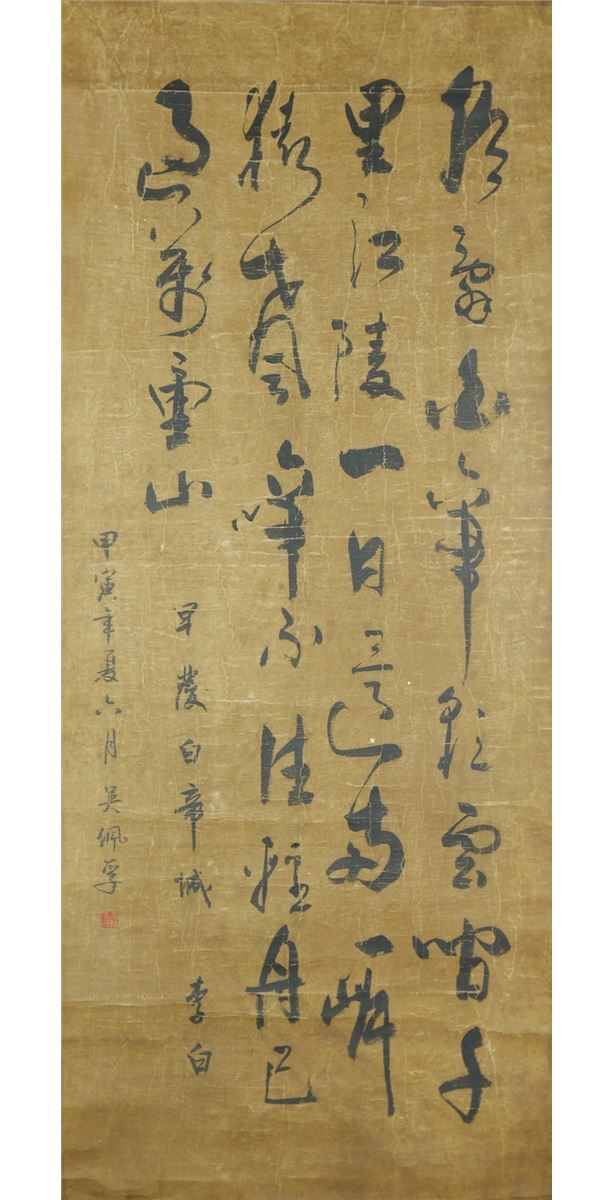 朝辭白帝彩雲間千
里江陵一日還兩岸
猿聲啼不住輕舟已
過萬重山
早發白帝誠 李白
甲寅年夏六月 吳佩孚